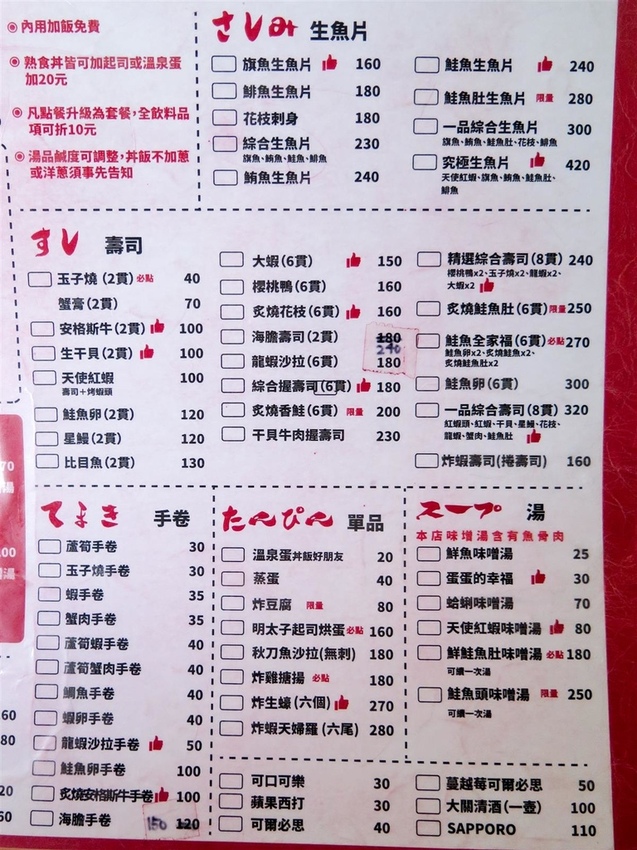 ◉內用加飯免費
◉熟食丼皆可加起司或溫泉蛋
加20元
◉凡點餐升級為套餐,全飲料品
項可折10元
◉湯品鹹度可調整,丼飯不加蔥
或洋蔥須事先告知
さしみ 生魚片
旗魚生魚片 160
鯡魚生魚片 180
花枝刺身 180
綜合生魚片 230
旗魚、鮪魚、鮭魚、鯡魚
鮪魚生魚片 240
鮭魚生魚片 240
鮭魚肚生魚片 限量 280
一品綜合生魚片 300
旗魚、鮪魚、鮭魚肚、花枝、鯡魚
究極生魚片 420
天使紅蝦、旗魚、鮪魚、鮭魚肚、
鯡魚
すし 壽司
玉子燒(2貫)必點 40
蟹膏(2貫) 70
安格斯牛(2貫) 100
生干貝(2貫) 100
天使紅蝦 100
壽司+烤蝦頭
鮭魚卵(2貫) 120
星鰻(2貫) 120
比目魚(2貫) 130
大蝦(6貫) 150
櫻桃鴨(6貫) 160
炙燒花枝(6貫) 160
海膽壽司(2貫) 180
240
龍蝦沙拉(6貫) 180
綜合握壽司(6貫) 180
炙燒香鮭(6貫) 限量 200
干貝牛肉握壽司 230
精選綜合壽司(8貫) 240
櫻桃鴨x2、玉子燒x2、龍蝦x2、
大蝦x2
炙燒鮭魚肚(6貫)限量 250
鮭魚全家福(6貫)必點 270
鮭魚卵x2、炙燒鮭魚x2、
炙燒鮭魚肚x2
鮭魚卵(6貫) 300
一品綜合壽司(8貫) 320
紅蝦頭、紅蝦、干貝、星鰻、花枝、
龍蝦、蟹肉、鮭魚肚
炸蝦壽司(捲壽司) 160
てまき 手卷
蘆筍手卷 30
玉子燒手卷 30
蝦手卷 35
蟹肉手卷 35
蘆筍蝦手卷 40
蘆筍蟹肉手卷 40
鯛魚手卷 40
蝦卵手卷 40
龍蝦沙拉手卷 50
鮭魚卵手卷 100
炙燒安格斯牛手卷 100
海膽手卷 150 120
たんぴん 單品
溫泉蛋丼飯好朋友 20
蒸蛋 40
炸豆腐 限量 80
明太子起司烘蛋必點 160
秋刀魚沙拉(無刺) 180
炸雞搪揚 必點 180
炸生蠔(六個) 270
炸蝦天婦羅(六尾) 280
スープ 湯
本店味增湯含有魚骨肉
鮮魚味噌湯 25
蛋蛋的幸福 30
蛤蜊味噌湯 70
天使紅蝦味噌湯 80
鮮鮭魚肚味噌湯 必點 180
可續一次湯
鮭魚頭味噌湯 限量 250
可續一次湯
可口可樂 30
蘋果西打 30
可爾必思 40
蔓越莓可爾必思 50
大關清酒(一壺) 100
SAPPORO 110